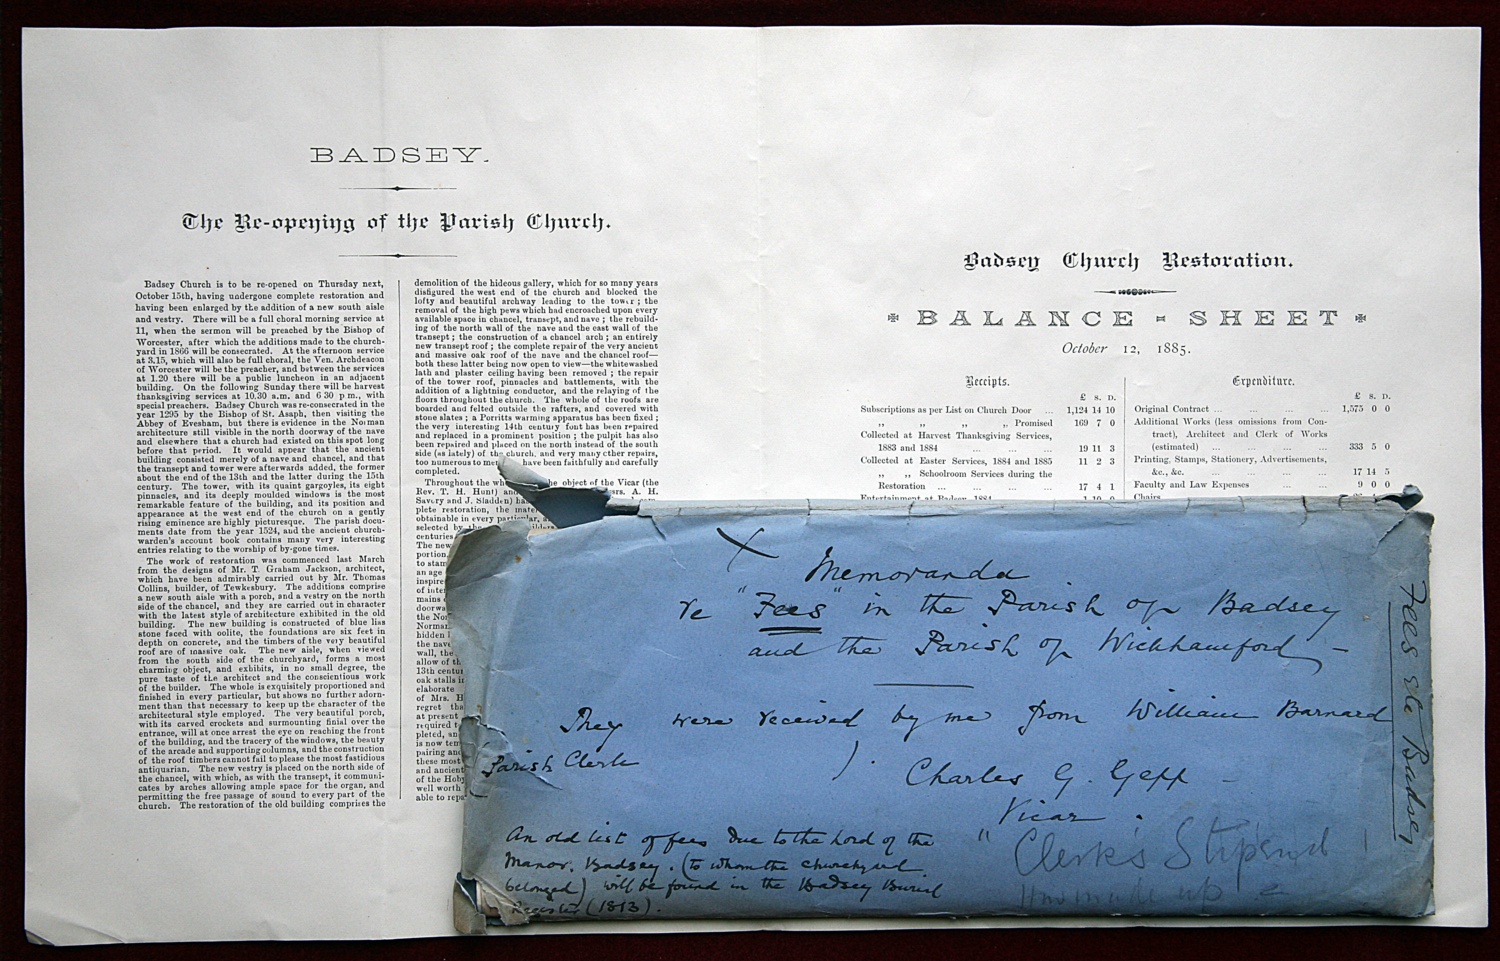 BADSEY.
The Re-opening of the Parish Church.
Badsey Church is to be re-opened on Thursday next,
October 15th, having undergone complete restoration and
having been enlarged by the addition of a new south aisle
and vestry. There will be a full choral morning service at
11, when the sermon will be preached by the Bishop of
Worcester, after which the additions made to the church-
yard in 1866 will be consecrated. At the afternoon service
at 3.15, which will also be full choral, the Ven. Archdeacon
of Worcester will be the preacher, and between the services
at 1.20 there will be a public luncheon in an adjacent
building. On the following Sunday there will be harvest
thanksgiving services at 10.30 a.m. and 6 30 p.m., with
special preachers. Badsey Church was re-consecrated in the
year 1295 by the Bishop of St. Asaph, then visiting the
Abbey of Evesham, but there is evidence in the Norman
architecture still visible in the north doorway of the nave
and elsewhere that a church had existed on this spot long
before that period. It would appear that the ancient
building consisted merely of a nave and chancel, and that
the transept and tower were afterwards added, the former
about the end of the 13th and the latter during the 15th
century. The tower, with its quaint gargoyles, its eight
pinnacles, and its deeply moulded windows is the most
remarkable feature of the building, and its position and
appearance at the west end of the church on a gently
rising eminence are highly picturesque. The parish docu-
ments date from the year 1524, and the ancient church-
warden's account book contains many very interesting
entries relating to the worship of by-gone times.
The work of restoration was commenced last March
from the designs of Mr. T. Graham Jackson, architect,
which have been admirably carried out by Mr. Thomas
Collins, builder, of Tewkesbury. The additions comprise
a new south aisle with a porch, and a vestry on the north
side of the chancel, and they are carried out in character
with the latest style of architecture exhibited in the old
building. The new building is constructed of blue lias
stone faced with oolite, the foundations are six feet in
depth on concrete, and the timbers of the very beautiful
roof are of massive oak. The new aisle, when viewed
from the south side of the churchyard, forms a most
charming object, and exhibits, in no small degree, the
pure taste of the architect and the conscientious work
of the builder. The whole is exquisitely proportioned and
finished in every particular, but shows no further adorn-
ment than that necessary to keep up the character of the
architectural style employed. The very beautiful porch,
with its carved crockets and surmounting finial over the
entrance, will at once arrest the eye on reaching the front
of the building, and the tracery of the windows, the beauty
of the arcade and supporting columns, and the construction
of the roof timbers cannot fail to please the most fastidious
antiquarian. The new vestry is placed on the north side of
the chancel, with which, as with the transept, it communi-
cates by arches allowing ample space for the organ, and
permitting the free passage of sound to every part of the
church. The restoration of the old building comprises the
demolition of the hideous gallery, which for so many years
disfigured the west end of the church and blocked the
lofty and beautiful archway leading to the tower; the
removal of the high pews which had encroached upon every
available space in chancel, transept, and nave; the rebuild-
ing of the north wall of the nave and the east wall of the
transept; the construction of a chancel arch; an entirely
new transept roof; the complete repair of the very ancient
and massive oak roof of the nave and the chancel roof—
both these latter being now open to view—the whitewashed
lath and plaster ceiling having been removed; the repair
of the tower roof, pinnacles and battlements, with the
addition of a lightning conductor, and the relaying of the
floors throughout the church. The whole of the roofs are
boarded and felted outside the rafters, and covered with
stone slates; a Porritts warming apparatus has been fixed;
the very interesting 14th century font has been repaired
and replaced in a prominent position; the pulpit has also
been repaired and placed on the north instead of the south
side (as lately) of the church, and very many other repairs,
too numerous to have been faithfully and carefully
completed.
Throughout the the object of the Vicar (the
Rev. T. H. Hunt) and A. H.
Savory and J. Sladden)
plete restoration, the
obtainable in every particular,
selected by the
centuries
The new
portion,
to stam
an age
inspire
of inter
mains
doorwa
the Nor
Norman
hidden
the nave
wall, the
allow of th
13th centu
oak stalls
elaborate
of Mrs. H
regret tha
at present
required t
pleted, and
is now tem
pairing and
these most
and ancient
of the Holy
well worth
able to repa
Badsey Church Restoration.
BALANCE - SHEET
October 12, 1885.
Receipts.
£ s. D.
Subscriptions as per List on Church Door ... 1,124 14 10
,, ,, ,, ,, Promised 169 7 0
Collected at Harvest Thanksgiving Services,
1883 and 1884 ... ... ... 19 11 3
Collected at Easter Services, 1884 and 1885 11 2 3
,, ,, Schoolroom Services during the
Restoration ... ... ... ... 17 4 1
Entertainment at Badsey, 1884 1 10 0
Expenditure.
£ s. D.
Original Contract ... ... ... ... 1,575 0 0
Additional Works (less omissions from Con-
tract), Architect and Clerk of Works
(estimated) ... ... ... ... 333 5 0
Printing, Stamps, Stationery, Advertisements,
&c., &c. ... ... ... ... 17 14 5
Faculty and Law Expenses ... ... 9 0 0
Chairs
Memoranda
re "Fees" in the Parish of Badsey
and the Parish of Wickhamford —
They were received by me from William Barnard
Parish Clerk
Charles G. Gepp —
Vicar.
An old list of fees due to the Lord of the
Manor. Badsey. (to whom the churchyard
belonged) will be found in the Badsey Burial
Register (1813).
Clerk's Stipend!
How made up?
Fees etc Badsey